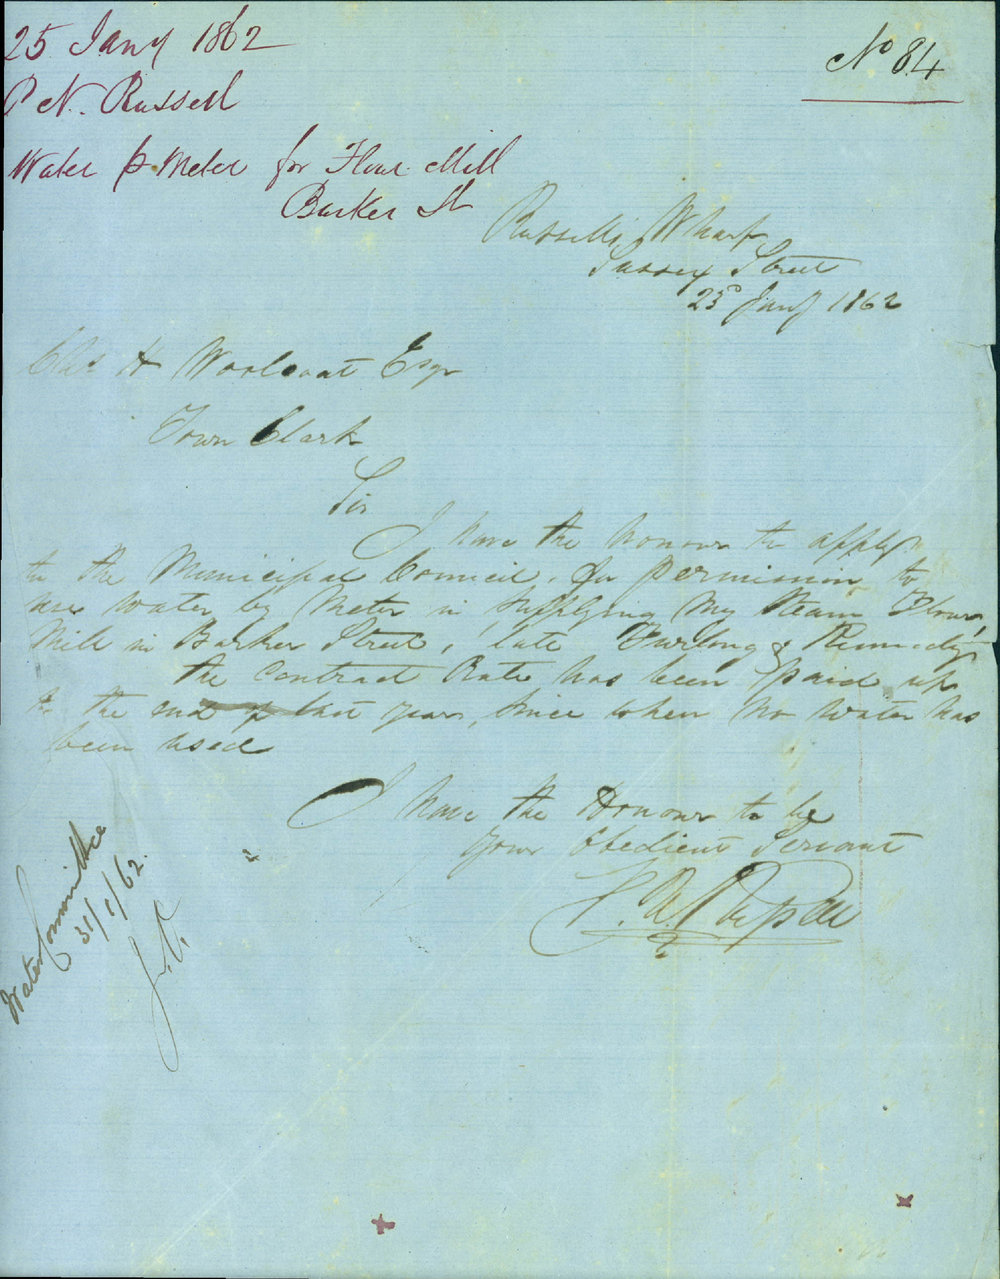 25 Jany 1862
P N. Russell
Water p Meter for Flour Mill
Barker St
No 84
Russell's Wharf
Sussex Street
25 Jany 1862
Chas H Woolcott Esqr
Town Clerk
Sir
I have the honour to apply
to the Municipal Council, for permission to
use water by Meter in supplying my Steam Flour
Mill in Barker Street, late Furlong & Kennedy
the Contract Rate has been paid up
to the end of last year, since when no water has
been used
I have the Honour to be
Your Obedient Servant
Water Committee
31/1/62.